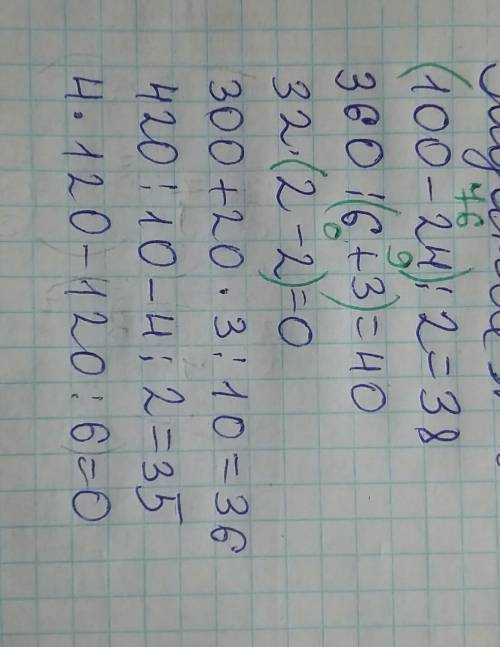 (100-24):2=38
76
360:(6+3)=40
9
32·(2-2)=0
0
300+20·3:10=36
420:10-4:2=35
4·120-120:6=0